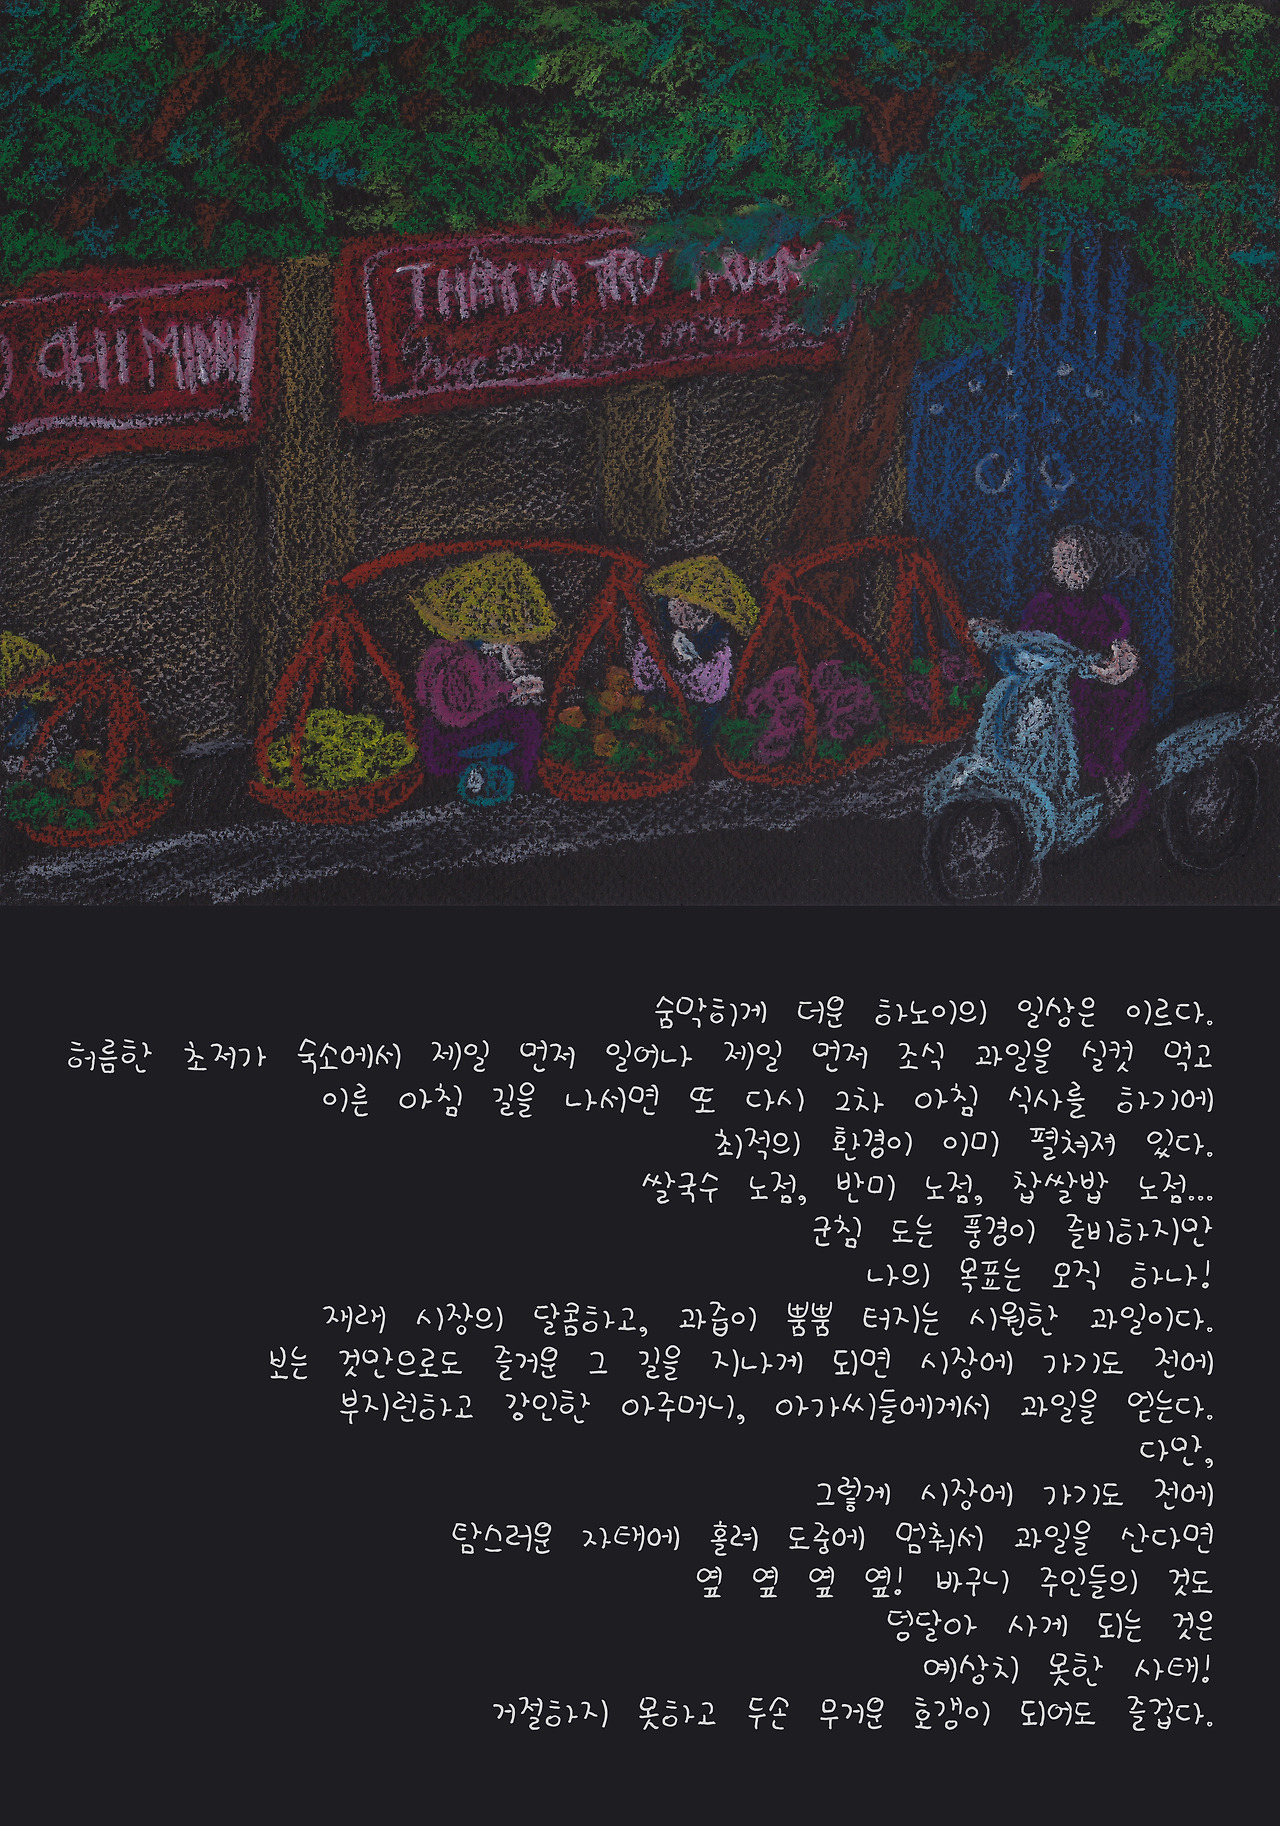 CHÍ MINH
THÂN VA
숨막히게 더운 하노이의 일상은 이르다.
허름한 초저가 숙소에서 제일 먼저 일어나 제일 먼저 조식 과일을 실컷 먹고
이른 아침 길을 나서면 또 다시 2차 아침 식사를 하기에
최적의 환경이 이미 펼쳐져 있다.
쌀국수 노점, 반미 노점, 찹쌀밥 노점...
군침 도는 풍경이 즐비하지만
나의 목표는 오직 하나!
재래 시장의 달콤하고, 과즙이 뿜뿜 터지는 시원한 과일이다.
보는 것만으로도 즐거운 그 길을 지나게 되면 시장에 가기도 전에
부지런하고 강인한 아주머니, 아가씨들에게서 과일을 얻는다.
다만,
그렇게 시장에 가기도 전에
탐스러운 자태에 홀려 도중에 멈춰서 과일을 산다면
옆 옆 옆 옆! 바구니 주인들의 것도
덩달아 사게 되는 것은
예상치 못한 사태!
거절하지 못하고 두손 무거운 호갱이 되어도 즐겁다.